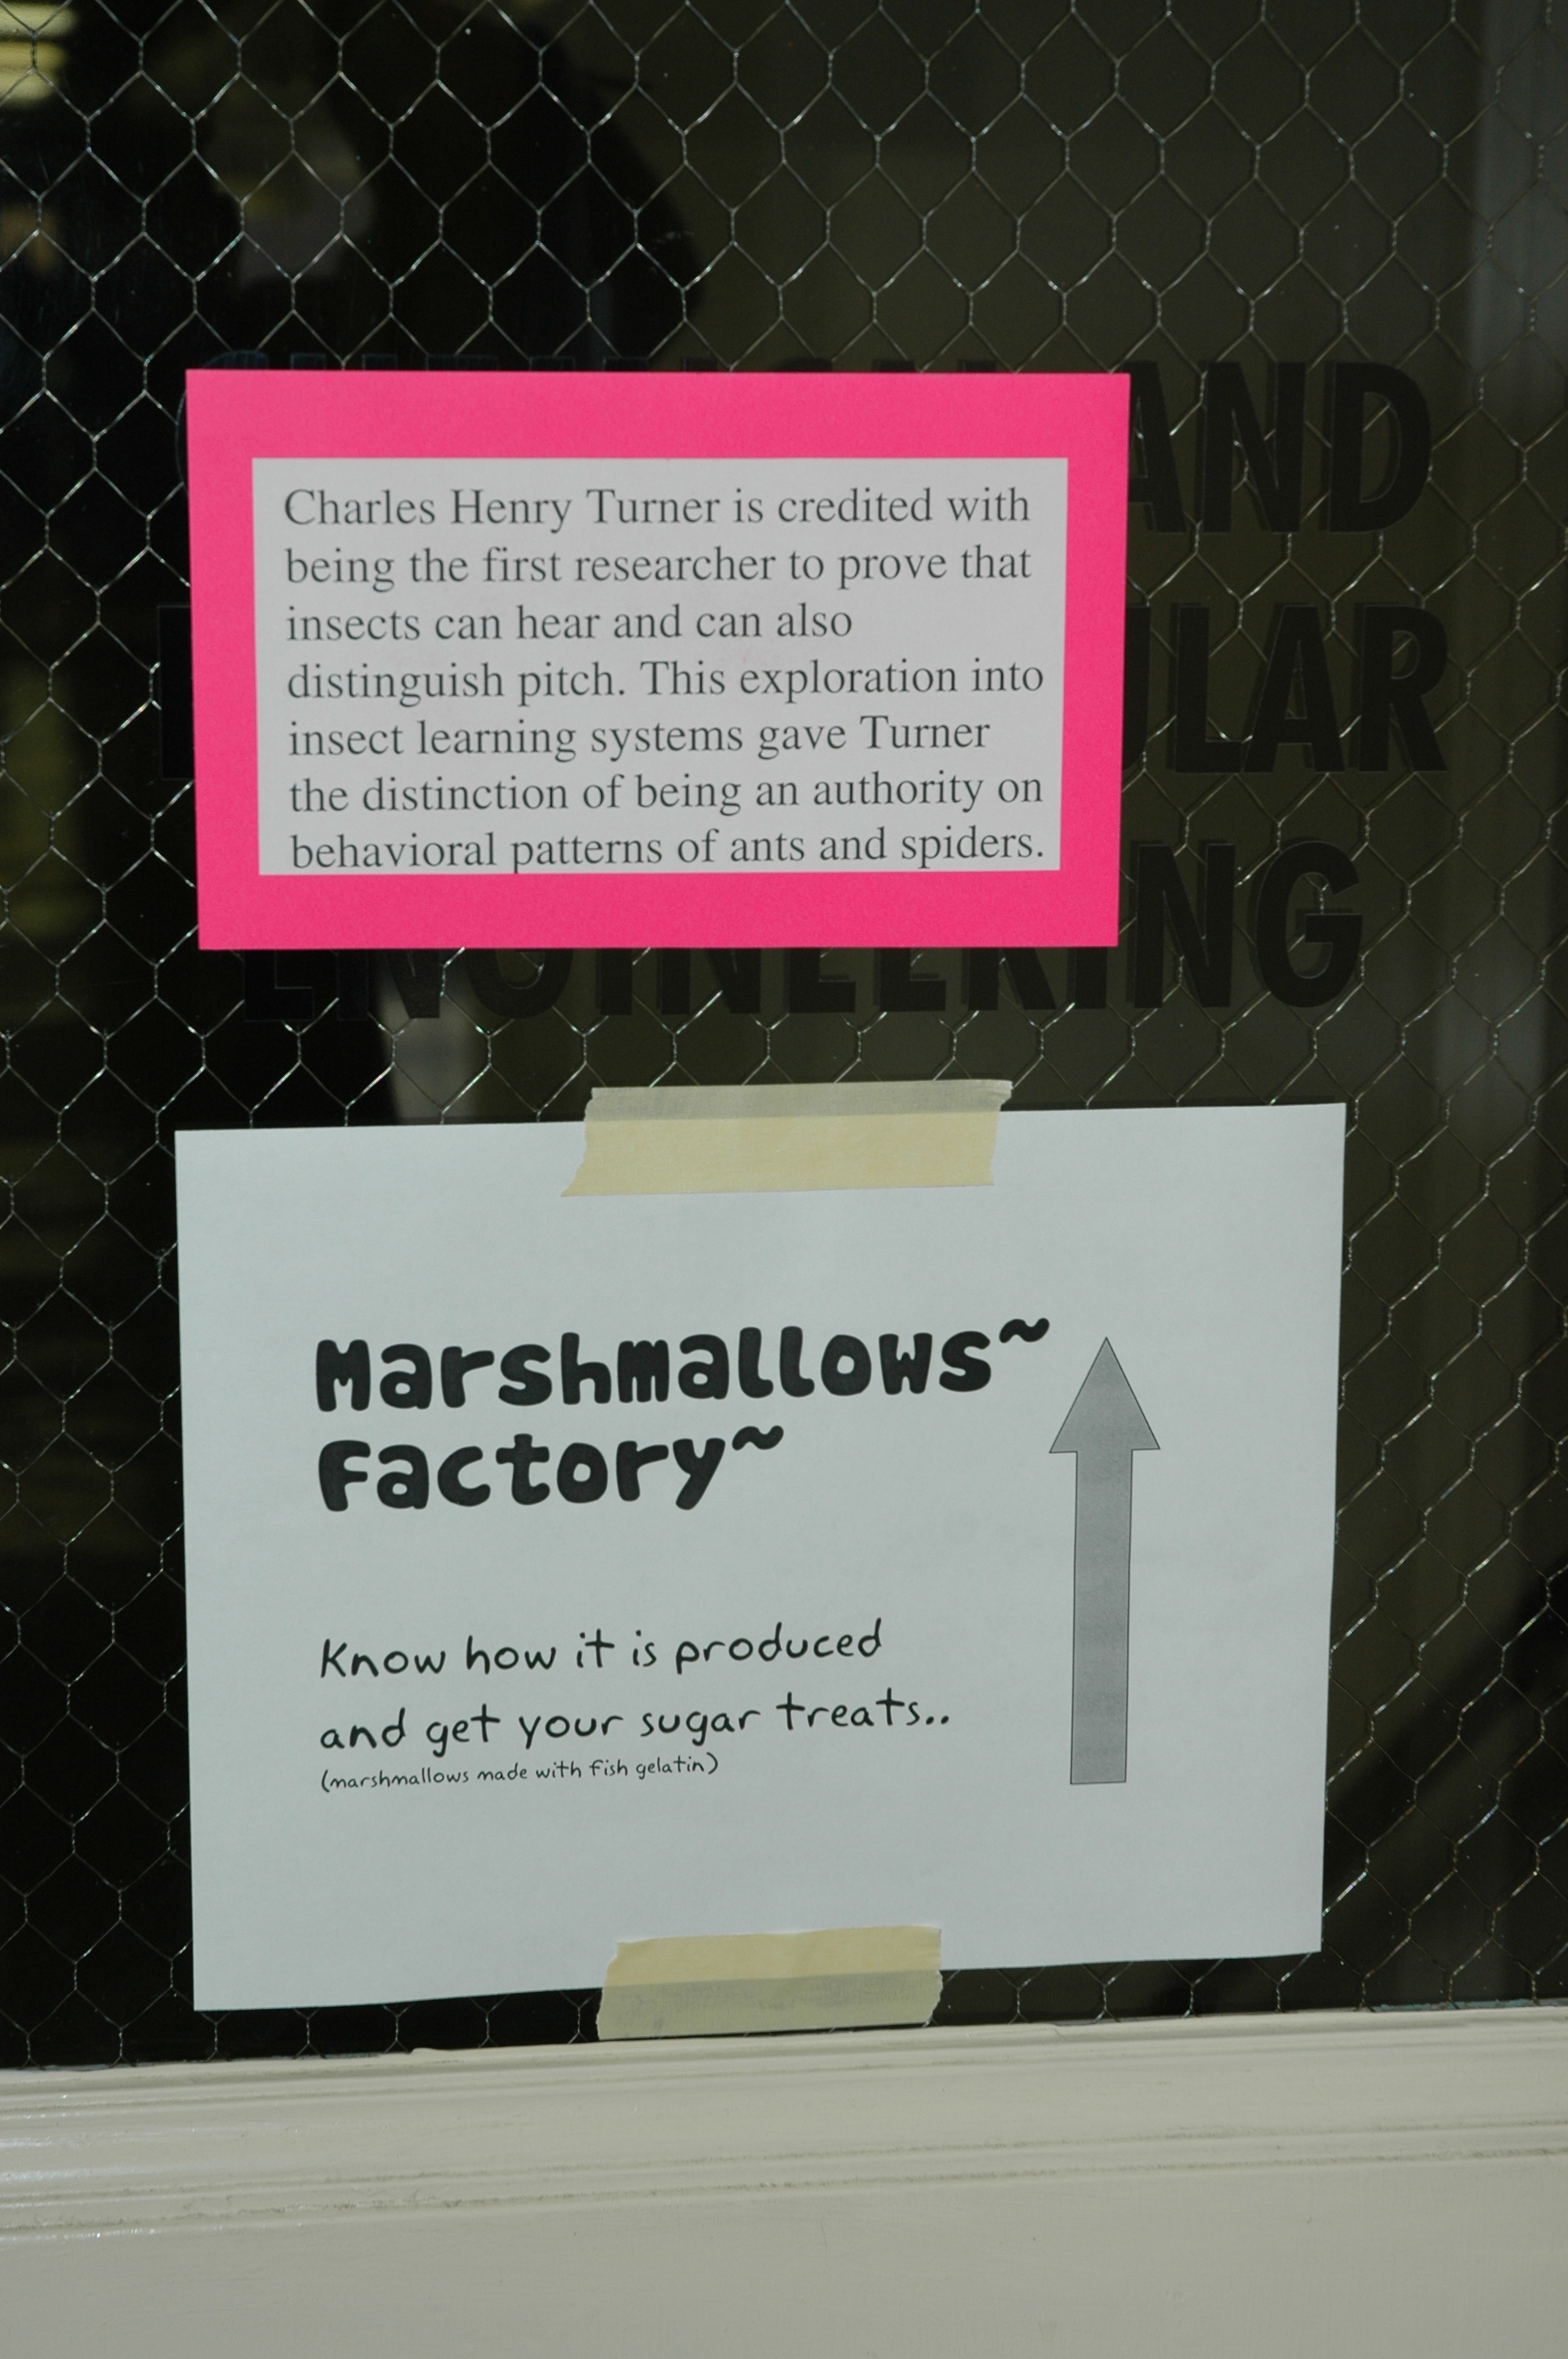 AND
Charles Henry Turner is credited with
being the first researcher to prove that
insects can hear and can also
distinguish pitch. This exploration into
insect learning systems gave Turner
the distinction of being an authority on
behavioral patterns of ants and spiders.
ENGINEERING
Marshmallows~
Factory~
Know how it is produced
and get your sugar treats..
(marshmallows made with fish gelatin)